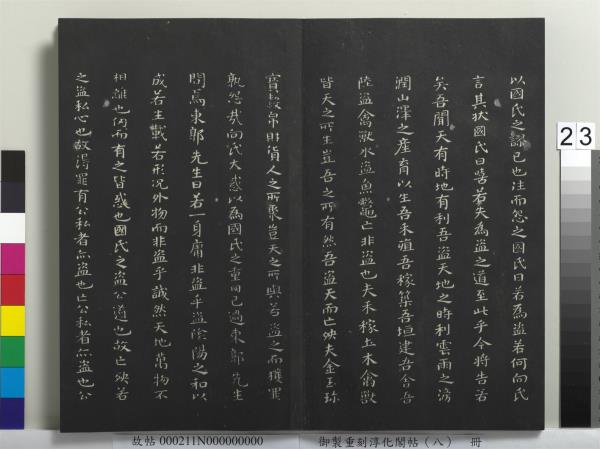 以國氏之謬己也往而怨之國氏曰若為盜若何向氏
言其狀國氏曰嘻若失為盜之道至此乎今將告若
矣吾聞天有時地有利吾盜天地之時利雲雨之滂
潤山澤之產育以生吾禾殖吾稼築吾垣建吾舍吾
陸盜禽獸水盜魚鱉亡非盜也夫禾稼土木禽獸
皆天之所生豈吾之所有然吾盜天而亡殃夫金玉珍
寶穀帛財貨人之所聚豈天之所與若盜之而獲罪
孰怨哉向氏大惑以為國氏之重罔己過東郭先生
問焉東郭先生曰若一身庸非盜乎盜陰陽之和以
成若生載若形況外物而非盜乎誠然天地萬物不
相離也仞而有之皆惑也國氏之盜公道也故亡殃若
之盜私心也故得罪有公私者亦盜也亡公私者亦盜也公
23
故帖 000211N000000000
御製重刻淳化閣帖（八） 冊